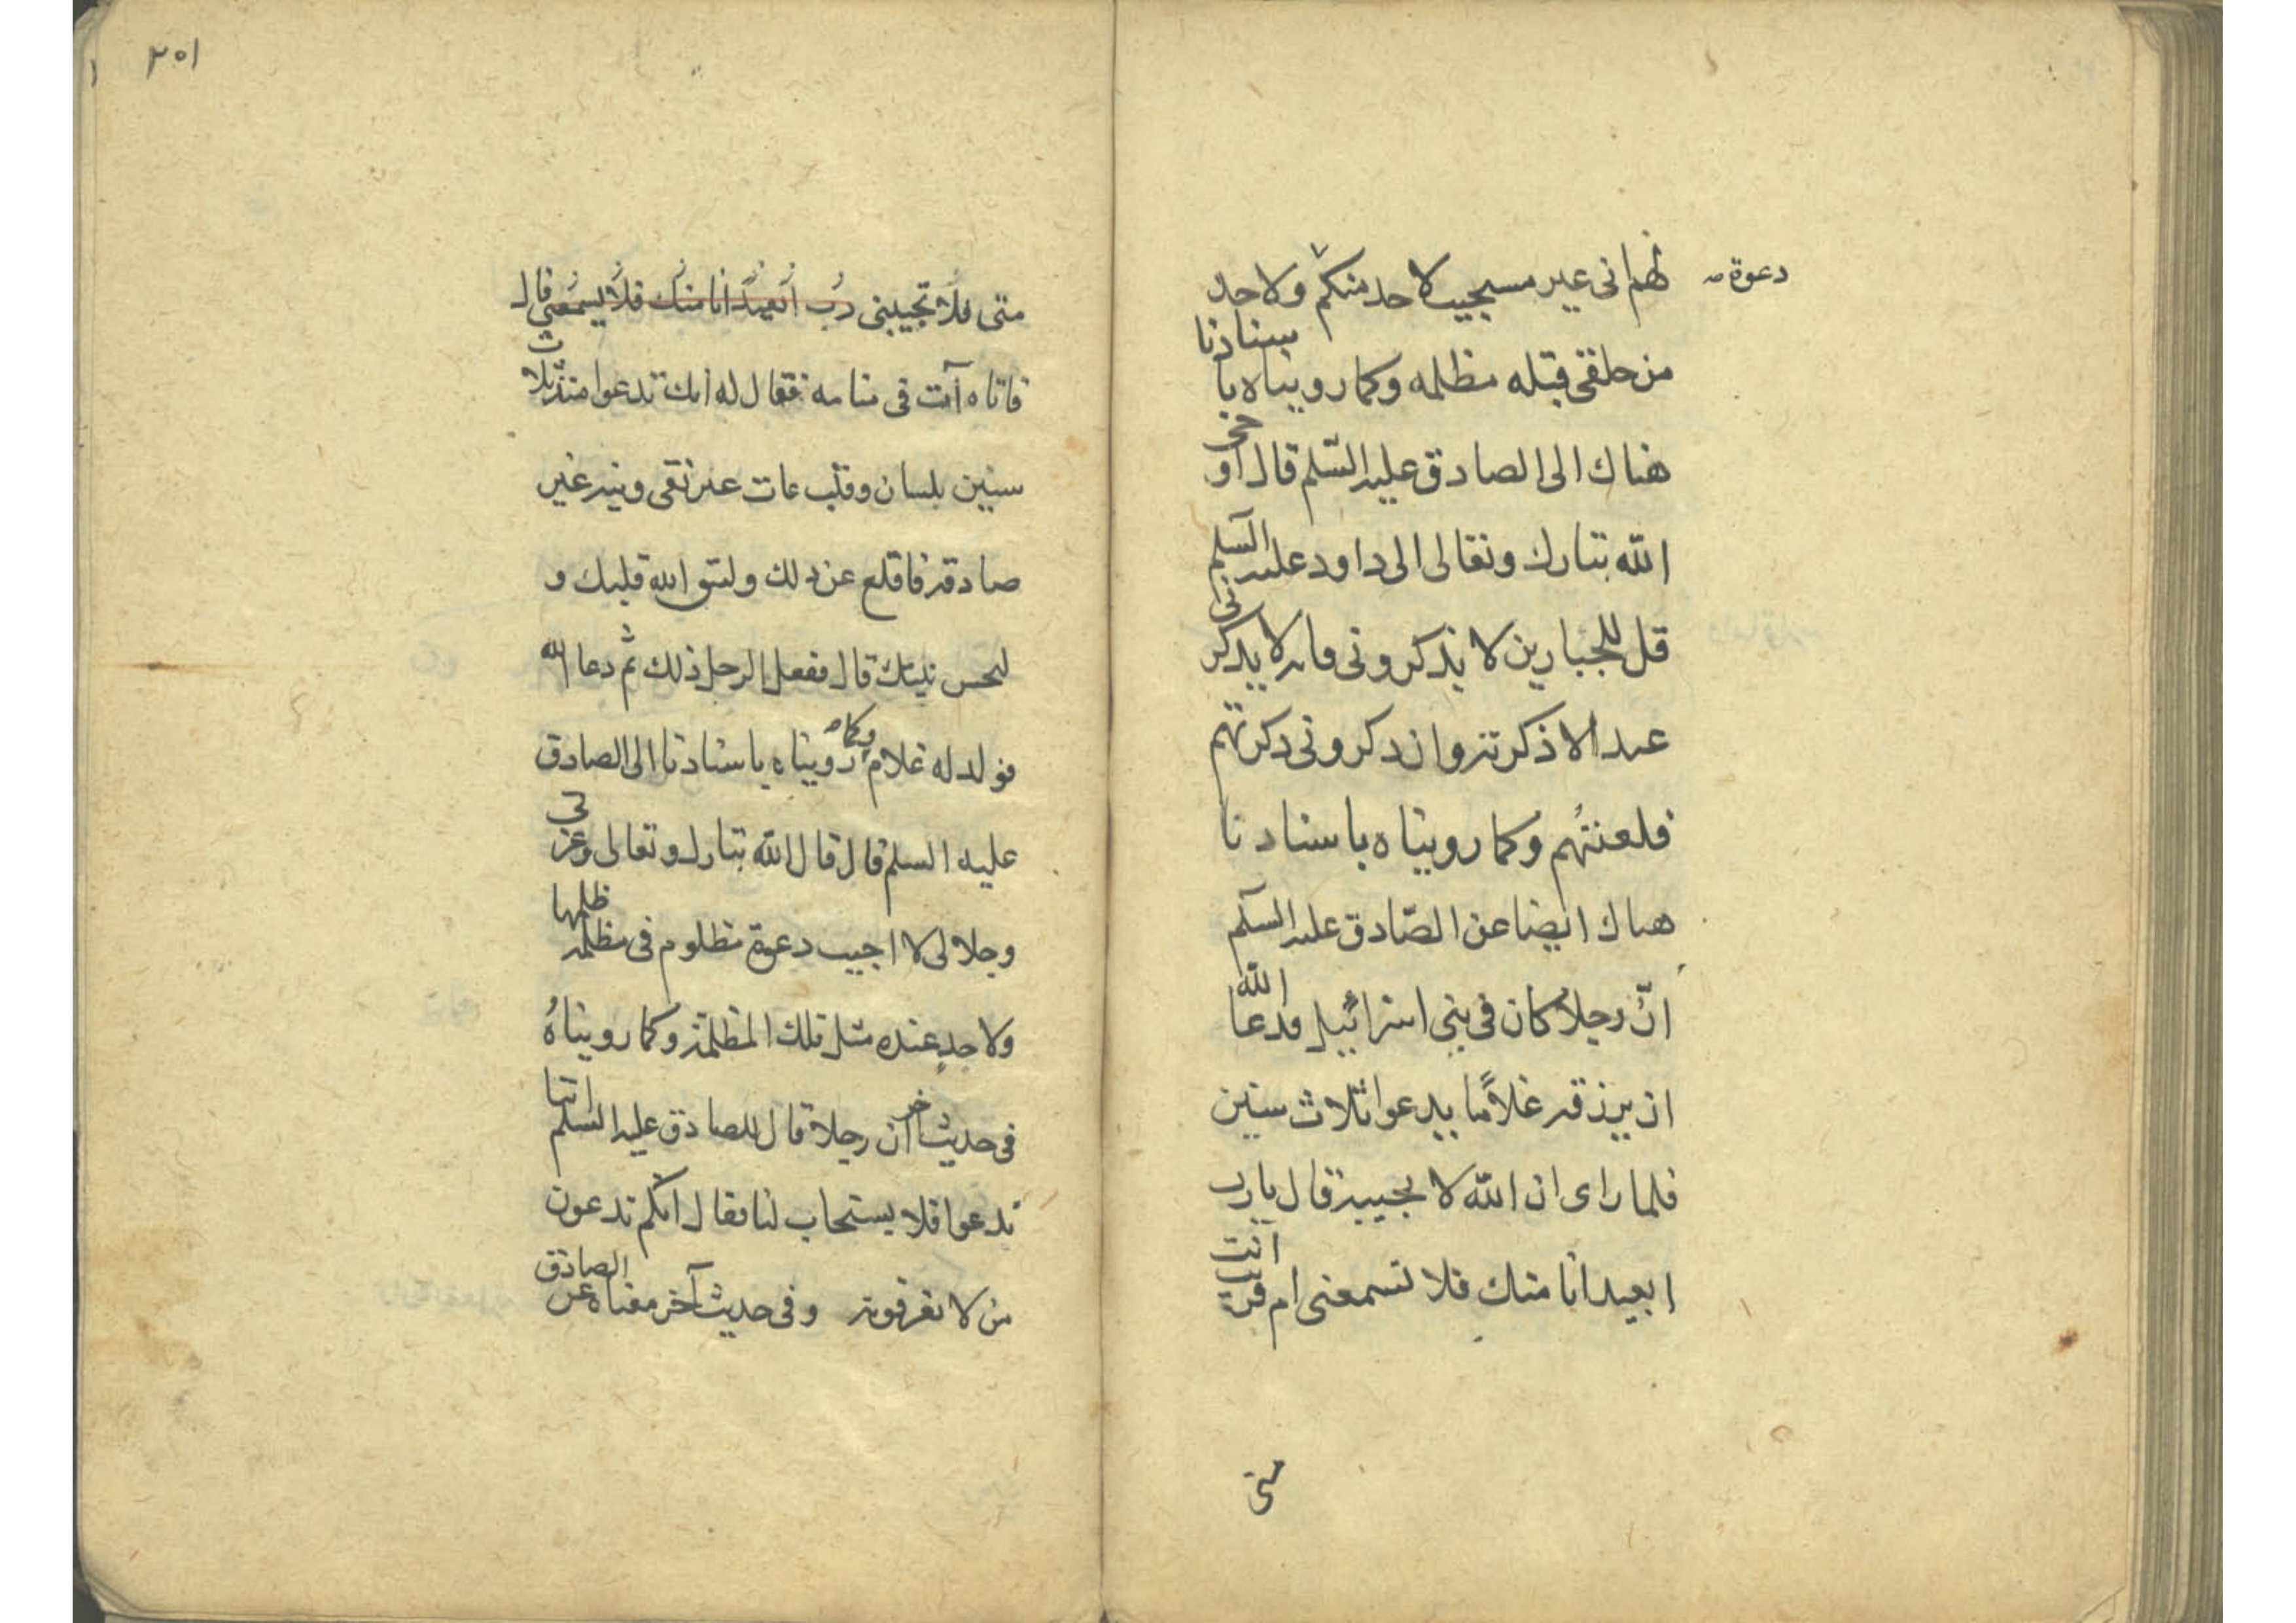 دعوة صه
لهم انى غير مستجيب لاحد منكم ولاحد
من خلقى قبله مظلمه وكما رويناه باسنادنا
هناك الى الصادق عليه السّلم قال اوحى
الله تبارك وتعالى الى داود عليه السّلم
قل للجبارين لا يذكرونى فانه لا يذكرنى
عبد الا ذكرته وان ذكرونى ذكرتهم
فلعنتهم وكما رويناه باسنادنا
هناك ايضا عن الصّادق عليه السّلم
انّ رجلا كان فى بنى اسرائيل فدعا الله
ان يرزقه غلامًا يدعوا ثلاث سنين
فلما راى ان الله لا يجيبه قال يا رب
ابعيد انا منك فلا تسمعنى ام قريب انت
منى
٢٠١
منى فلا تجيبنى رب ابعيد انا منك فلا يسمعنى قال
فاتاه آت فى منامه فقال له انك تدعوا منذ ثلاث
سنين بلسان وقلب عات غير نقى ونيه غير
صادقه فاقلع عن ذلك وليتق الله قلبك و
لتحسن نيتك قال ففعل الرجل ذلك ثم دعا الله
فولد له غلام وكما رويناه باسنادنا الى الصادق
عليه السلم قال قال الله تبارك وتعالى وعزتى
وجلالى لا اجيب دعوة مظلوم فى مظلمة ظلمها
ولاحدٍ عنده مثل تلك المظلمة وكما رويناهُ
فى حديث آخر ان رجلا قال للصادق عليه السلم اننا
ندعوا فلا يستجاب لنا فقال انكم تدعون
من لا تعرفونه وفى حديث آخر معناه عن الصادق